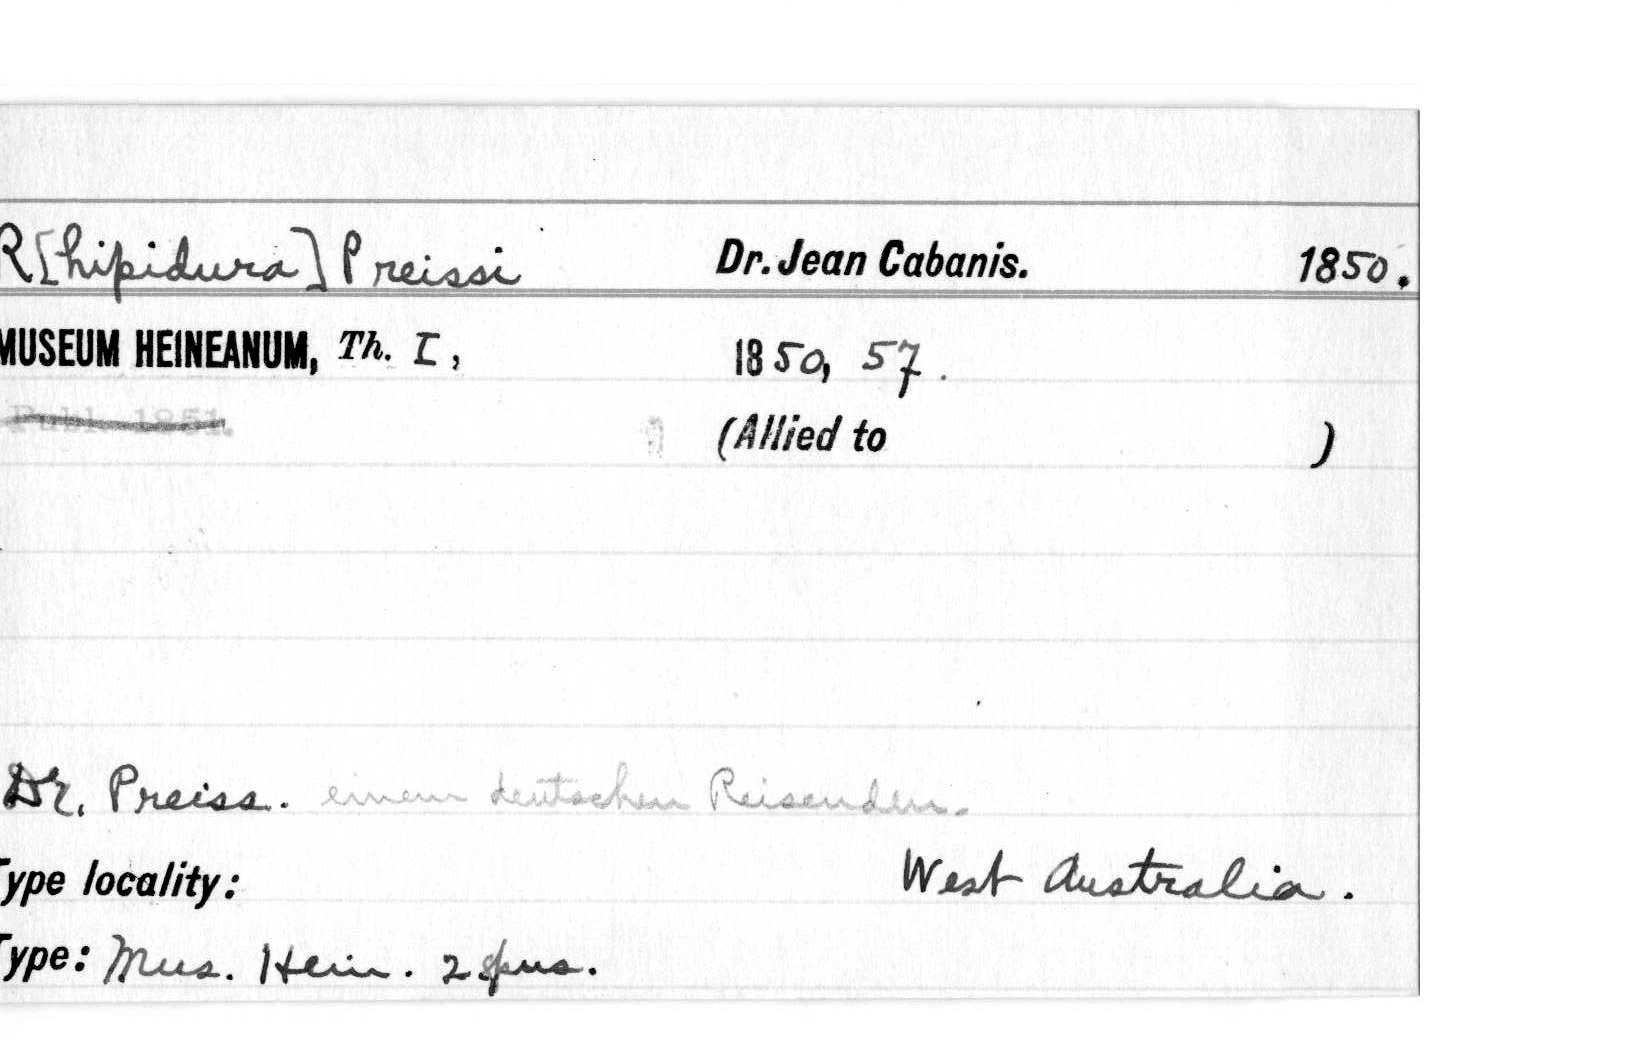 R[hipidura] Preissi Dr. Jean Cabanis. 1850.
MUSEUM HEINEANUM, Th. I, 1850, 57.
Publ. 1851.
(Allied to )
Dr. Preiss. einem deutschen Reisenden.
Type locality: West Australia.
Type: Mus. Hein. 2 spns.